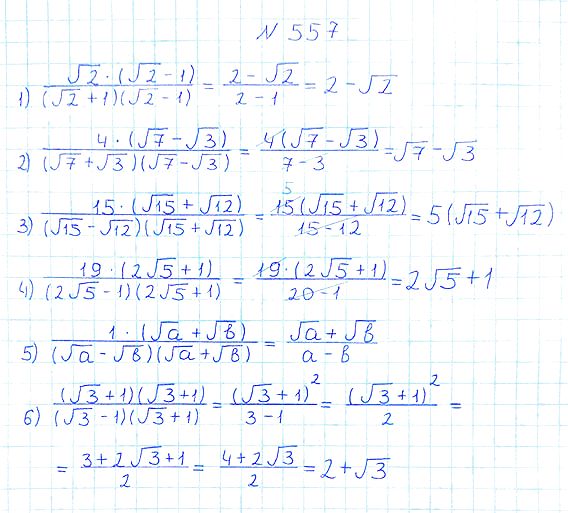 N 557
1) √2·(√2-1)/(√2+1)(√2-1) = 2-√2/2-1 = 2-√2
2) 4·(√7-√3)/(√7+√3)(√7-√3) = 4(√7-√3)/7-3 = √7-√3
3) 15·(√15+√12)/(√15-√12)(√15+√12) = 15(√15+√12)/15-12 = 5(√15+√12)
5
4) 19·(2√5+1)/(2√5-1)(2√5+1) = 19·(2√5+1)/20-1 = 2√5+1
5) 1·(√a+√b)/(√a-√b)(√a+√b) = √a+√b/a-b
6) (√3+1)(√3+1)/(√3-1)(√3+1) = (√3+1)²/3-1 = (√3+1)²/2 =
= 3+2√3+1/2 = 4+2√3/2 = 2+√3